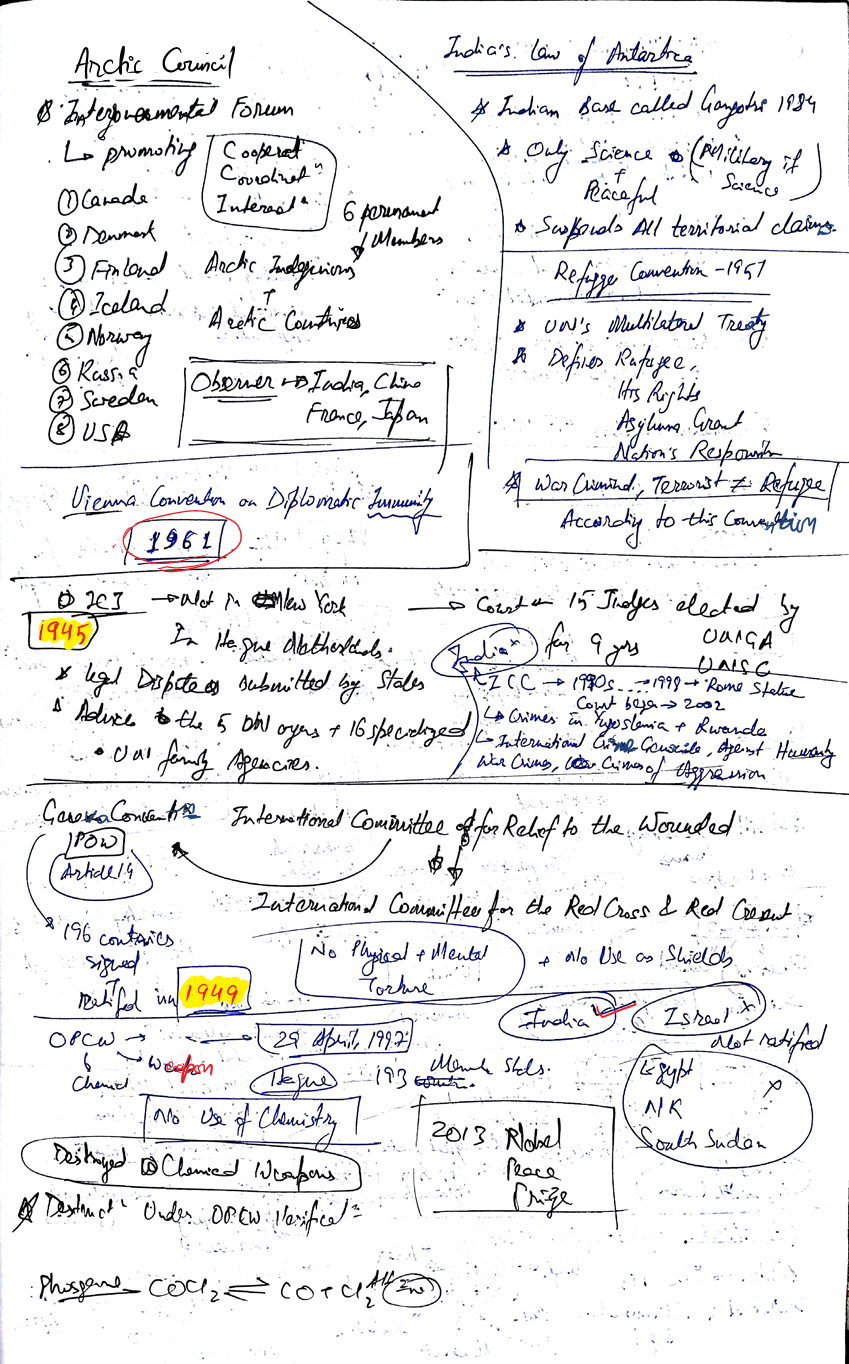 Arctic Council
Intergovernmental Forum
↳ promoting
Cooperatⁿ
Coordinatⁿ
Interactⁿ
① Canada
② Denmark
③ Finland
④ Iceland
⑤ Norway
⑥ Russia
⑦ Sweden
⑧ USA
6 permanent
Members
Arctic Indegenious
↑
Arctic Countries
Observer → India, China
France, Japan
India's Law of Antartica
Indian Base called Gangotri 1984
Only Science (Military if
+ Science)
Peaceful
Suspends All territorial claims.
Refugge Convention - 1951
UN's Multilateral Treaty
Defines Refugee,
His Rights
Asylum Grant
Nation's Responsib
War Criminal, Terrorist ≠ Refugee
According to this Convention
Vienna Convention on Diplomatic Immunity
1961
ICJ → Not in New York
1945
In Hegue Netherlands.
legal Disputes submitted by States
Advice to the 5 UN orgns + 16 specialized
• UN family Agencies.
→ Court 15 Judges elected by
for 9 yrs UNGA
UNSC
India ×
ICC → 1990s → 1998 → Rome Statue
Court began → 2002
↳ Crimes in Yugoslavia + Rwanda
↳ International Crime Genocide, Against Humanity
War Crimes, Crimes of Aggression
Geneva Convention
POW
Article 14
International Committee for Relief to the Wounded
International Committee for the Red Cross & Red Cresent
196 contries
signed
+
Ratified in 1949
No Physical + Mental
Torture
+ No Use as Shields
India ✓
Israel ×
Not ratified
Egypt
NK
South Sudan
×
OPCW → → 29 April, 1997
Chemical
Weapon
Hague
193 Member Stats.
No Use of Chemistry
2013 Nobel
Peace
Prize
Destroyed Chemical Weapons
Destructⁿ Under OPCW Verificatⁿ
Phosgene - COCl₂ ⇌ CO + Cl₂